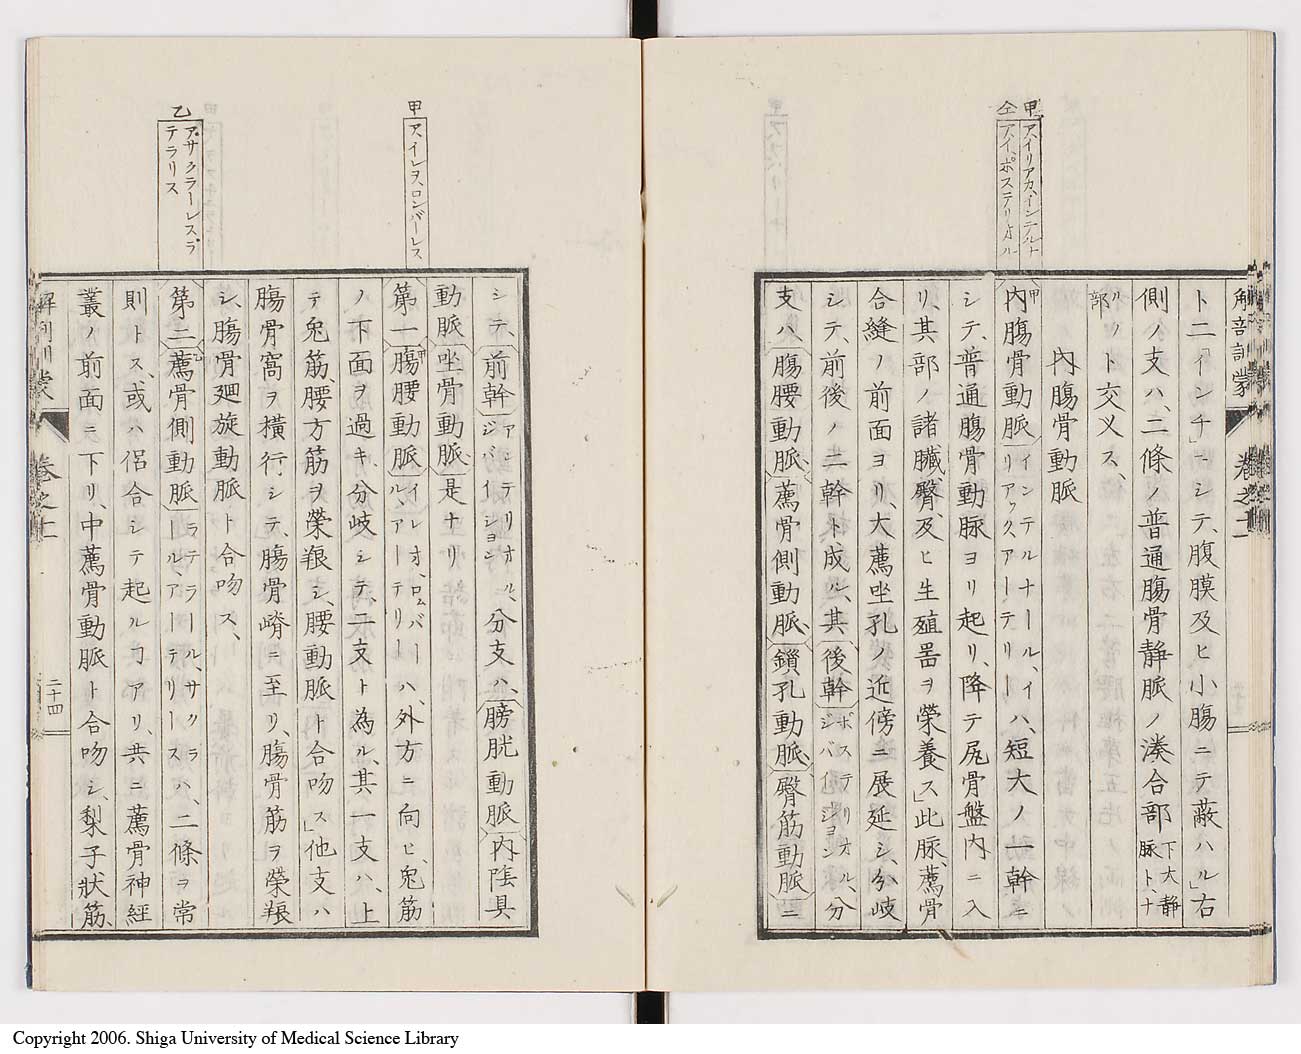 解剖訓蒙 巻之十一
甲 ア、イリアカ、インテルナ
仝 ア、イ、ポステリオル
ト二「インチ」ーシテ、腹膜及ヒ小腸ニテ蔽ハル」右
側ノ支ハ、二條ノ普通腸骨静脈ノ湊合部 下大静脈ト、ナ
ルノ部 ト交叉ス、
內腸骨動脈
內腸骨動脈 インテルナール、イリアックスアーテリー ハ、短大ノ一幹ニ
シテ、普通腸骨動脈ヨリ起リ、降テ尻骨盤內ニ入
リ、其部ノ諸臓、臀、及ヒ生殖噐ヲ榮養ス」此脈、薦骨
合縫ノ前面ヨリ、大薦坐孔ノ近傍ニ展延シ、分岐
シテ、前後ノ二幹ト成ル、其後幹 ポステリオル、ジバイション 分
支ハ、腸腰動脈、薦骨側動脈、鎖孔動脈、臀筋動脈ニ
甲 ア、イレヲ、ロンバーレス
乙 ア、サクラーレス、ラテラリス
シテ、前幹 アンテリオル、ジバイション 分支ハ、膀胱動脈、內陰具
動脈、坐骨動脈、是ナリ
第一腸腰動脈 イレオ、ロムバール、アーテリー ハ、外方ニ向ヒ、兎筋
ノ下面ヲ過キ、分岐シテ、二支ト為ル、其一支ハ、上
テ兎筋、腰方筋ヲ榮養シ、腰動脈ト合吻ス」他支ハ
腸骨窩ヲ横行シテ、腸骨嵴ニ至リ、腸骨筋ヲ榮養
シ、腸骨廻旋動脈ト合吻ス、
第二薦骨側動脈 ラテラール、サクラール、アーテリース ハ、二條ヲ常
則トス、或ハ侶合シテ起ルヿアリ、共ニ薦骨神経
叢ノ前面ニ下リ、中薦骨動脈ト合吻シ、梨子狀筋、
解剖訓蒙 巻之十一 二十四
Copyright 2006. Shiga University of Medical Science Library